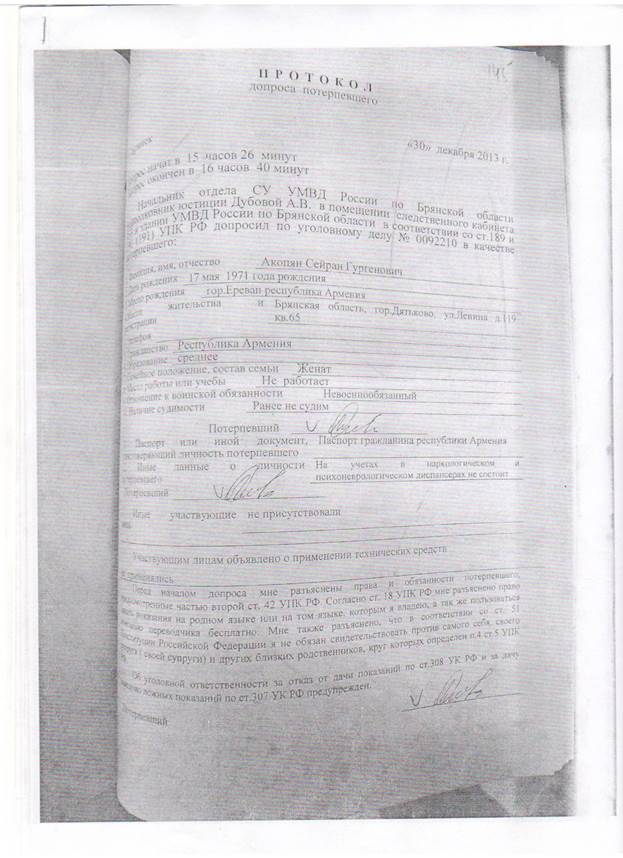 145
П Р О Т О К О Л
допроса потерпевшего
«30» декабря 2013 г.
начат в 15 часов 26 минут
окончен в 16 часов 40 минут
Начальник отдела СУ УМВД России по Брянской области
юстиции Дубовой А.В. в помещении следственного кабинета
в здании УМВД России по Брянской области в соответствии со ст.189 и
(191) УПК РФ допросил по уголовному делу № 0092210 в качестве
потерпевшего:
Фамилия, имя, отчество Акопян Сейран Гургенович
Дата рождения 17 мая 1971 года рождения
Место рождения гор.Ереван республика Армения
жительства и Брянская область, гор.Дятьково, ул.Ленина д.119
регистрации кв.65
телефон
Гражданство Республика Армения
Образование среднее
Семейное положение, состав семьи Женат
Место работы или учебы Не работает
Отношение к воинской обязанности Невоеннообязанный
Наличие судимости Ранее не судим
Потерпевший
Паспорт или иной документ, Паспорт гражданина республики Армения
удостоверяющий личность потерпевшего
Иные данные о личности На учетах в наркологическом и
потерпевшего психоневрологическом диспансерах не состоит
Потерпевший
Иные участвующие не присутствовали
лица
Участвующим лицам объявлено о применении технических средств
не применялись
Перед началом допроса мне разъяснены права и обязанности потерпевшего,
предусмотренные частью второй ст. 42 УПК РФ. Согласно ст. 18 УПК РФ мне разъяснено право
давать показания на родном языке или на том языке, которым я владею, а так же пользоваться
помощью переводчика бесплатно. Мне также разъяснено, что в соответствии со ст. 51
Конституции Российской Федерации я не обязан свидетельствовать против самого себя, своего
супруга ( своей супруги) и других близких родственников, круг которых определен п.4 ст.5 УПК
РФ.
Об уголовной ответственности за отказ от дачи показаний по ст.308 УК РФ и за дачу
заведомо ложных показаний по ст.307 УК РФ предупрежден.
Потерпевший